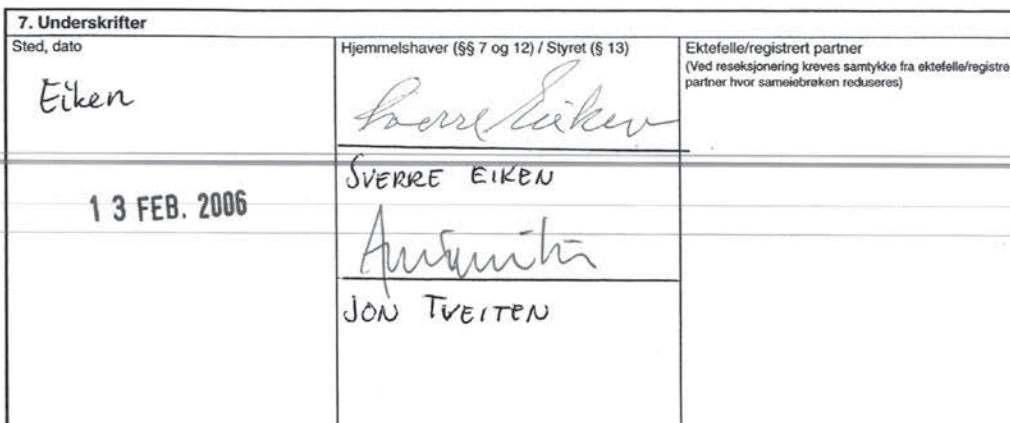 7. Underskrifter
Sted, dato
Eiken
13 FEB. 2006
Hjemmelshaver (§§ 7 og 12) / Styret (§ 13)
Sverre Eiken
SVERRE EIKEN
JON TVEITEN
Ektefelle/registrert partner
(Ved reseksjonering kreves samtykke fra ektefelle/registre
partner hvor sameiebrøken reduseres)